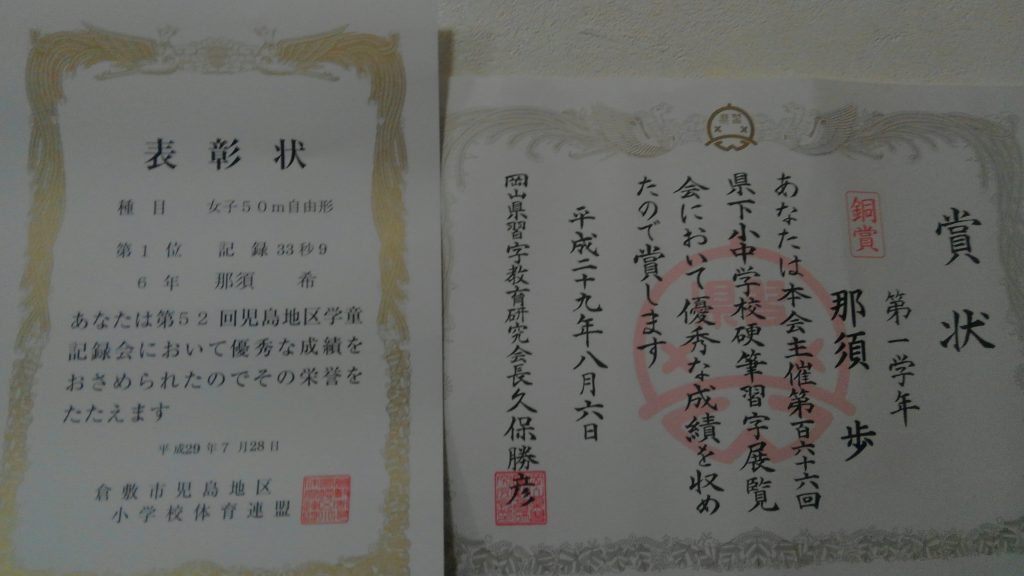 表彰状
種目 女子50m自由形
第1位 記録 33秒9
6年 那須 希
あなたは第52回児島地区学童
記録会において優秀な成績を
おさめられたのでその栄誉を
たたえます
平成29年7月28日
倉敷市児島地区
小学校体育連盟
賞状
銅賞
第一学年
那須 歩
あなたは本会主催第百六十六回
県下小中学校硬筆習字展覧
会において優秀な成績を収め
たので賞します
平成二十九年八月六日
岡山県習字教育研究会長久保勝彦